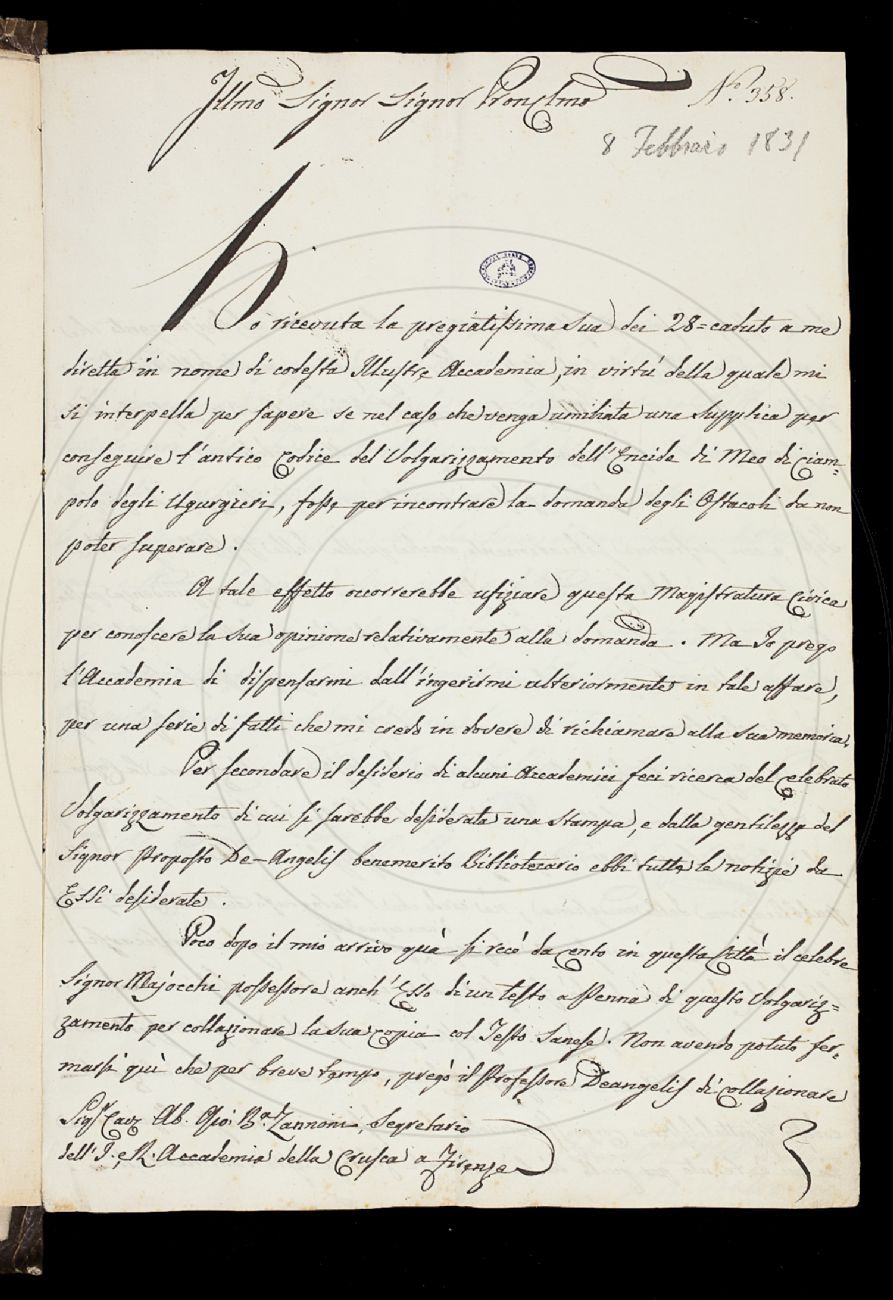 Illmo Signor Signor Pron Clmo
N.º 358.
8 Febbraio 1831
Ho ricevuta la pregiatissima Sua dei 28 = caduto a me
diretta in nome di codesta Illustre Accademia, in virtù della quale mi
si interpella per sapere se nel caso che venga umiliata una Supplica per
conseguire l'antico Codice del Volgarizzamento dell'Eneide di Meo di Ciam=
polo degli Ugurgieri, fosse per incontrare la domanda degli Ostacoli da non
poter superare.
A tale effetto occorrerebbe ufiziare questa Magistratura Civica
per conoscere la sua opinione relativamente alla domanda. Ma Io prego
l'Accademia di dispensarmi dall'ingerirmi ulteriormente in tale affare,
per una serie di fatti che mi credo in dovere di richiamare alla Sua memoria.
Per secondare il desiderio di alcuni Accademici feci ricerca del celebrato
Volgarizzamento di cui si sarebbe desiderata una Stampa, e dalla gentilezza del
Signor Proposto De-Angelis benemerito Bibliotecario ebbi tutte le notizie da
Essi desiderate.
Poco dopo il mio arrivo quà si recò da Cento in questa Città il celebre
Signor Majocchi possessore anch'Esso di un testo a Penna di questo Volgariz=
zamento per collazionare la sua copia col Testo Sanese. Non avendo potuto fer=
marsi quì che per breve tempo, pregò il Professore Deangelis di collazionare
Sigr Cavr Ab. Gio: Ba Zannoni, Segretario
dell'I. e R. Accademia della Crusca a Firenze